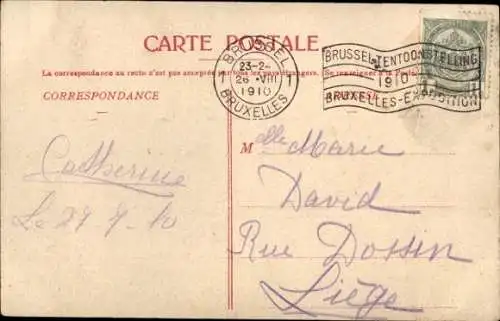 CARTE POSTALE
La correspondance au recto n'est pas acceptée par tous les pays étrangers. Se renseigner à la poste
CORRESPONDANCE
BRUSSEL
23-2
26-VIII 1
1910
BRUXELLES
BRUSSEL TENTOONSTELLING
1910
BRUXELLES-EXPOSITION
Catherine
Le 27
10
Melle Marie
David
Rue Dossin
Liège